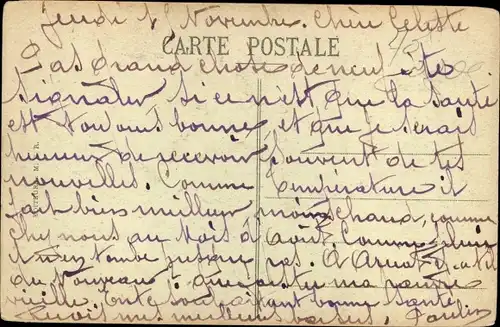 Jeudi 1 Novembre. Chère Celeste
CARTE POSTALE
Pas grand chose de neuf à te
signaler si ce n'est que la santé
est toujours bonne et que je serais
heureux de recevoir souvent de tes
nouvelles. Comme température il
fait bien meilleur moins chaud, comme
chez nous au mois d'août. Comme pluie
il n'en tombe presque pas. A
du Nouveau? que fais tu ma pauvre
vieille. bonne santé
Reçois mes meilleurs baisers,